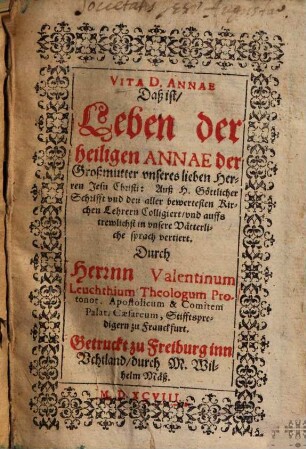 Societatis Jesu Augustæ
VITA D. ANNAE
Daß ist/
Leben der
heiligen ANNAE der
Großmutter vnseres lieben Her-
ren Jesu Christi: Auß H. Göttlicher
Schrifft vnd den aller bewertesten Kir-
chen Lehrern Colligiert/vnd auffs
trewlichst in vnsere Vätterli-
che sprach vertiert.
Durch
Herrnn Valentinum
Leuchthium Theologum Pro-
tonot. Apostolicum & Comitem
Palat, Cæsareum, Stifftspre-
digern zu Franckfurt.
Getruckt zu Freiburg inn
Vchtland/durch M. Wil-
helm Mäß.
M.D.XCVIII.